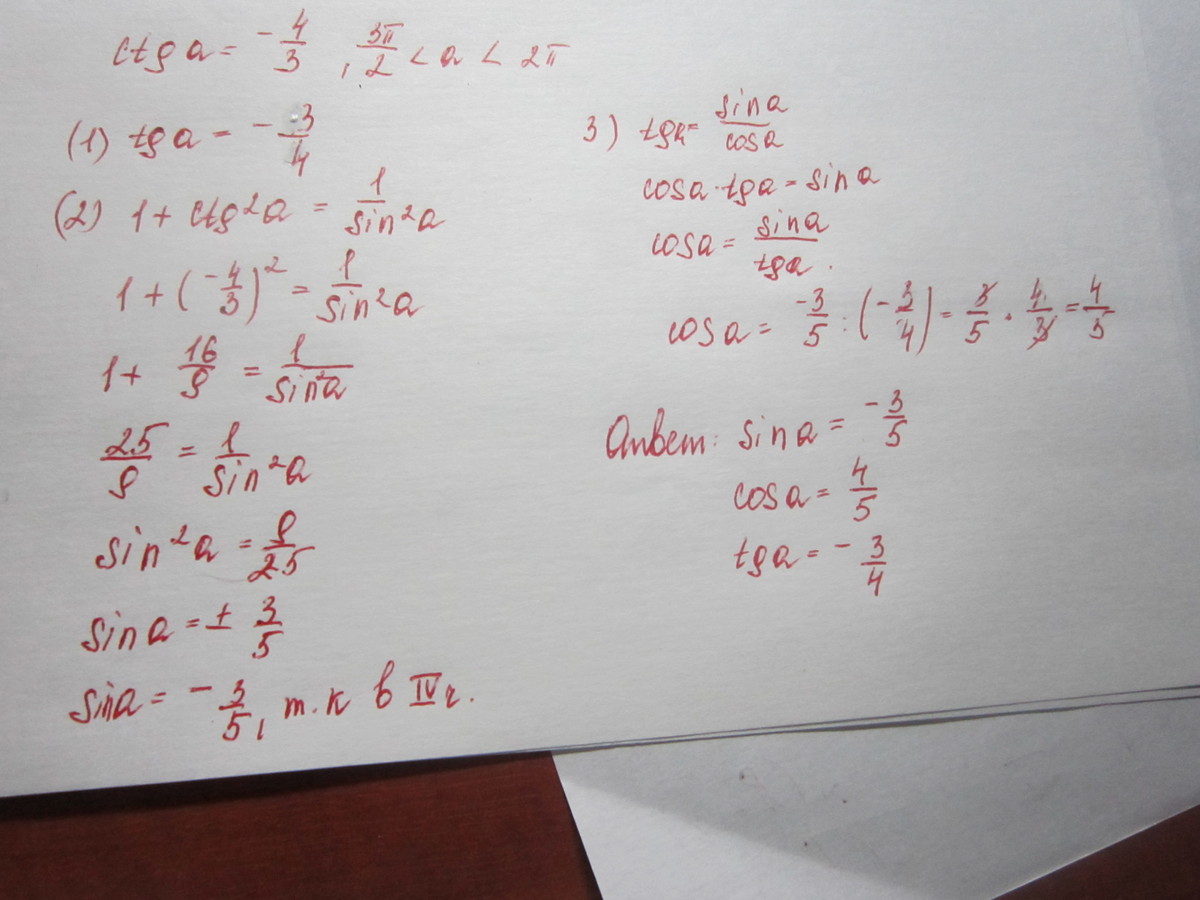 ctg a = -4/3 , 3π/2 < a < 2π
(1) tg a = -3/4
(2) 1 + ctg²a = 1/sin²a
1 + (-4/3)² = 1/sin²a
1 + 16/9 = 1/sin²a
25/9 = 1/sin²a
sin²a = 9/25
sin a = ± 3/5
sin a = -3/5, т.к в IV ч.
3) tg a = sin a/cos a
cos a · tg a = sin a
cos a = sin a/tg a.
cos a = -3/5 : (-3/4) = 3/5 · 4/3 = 4/5
Ответ: sin a = -3/5
cos a = 4/5
tg a = -3/4